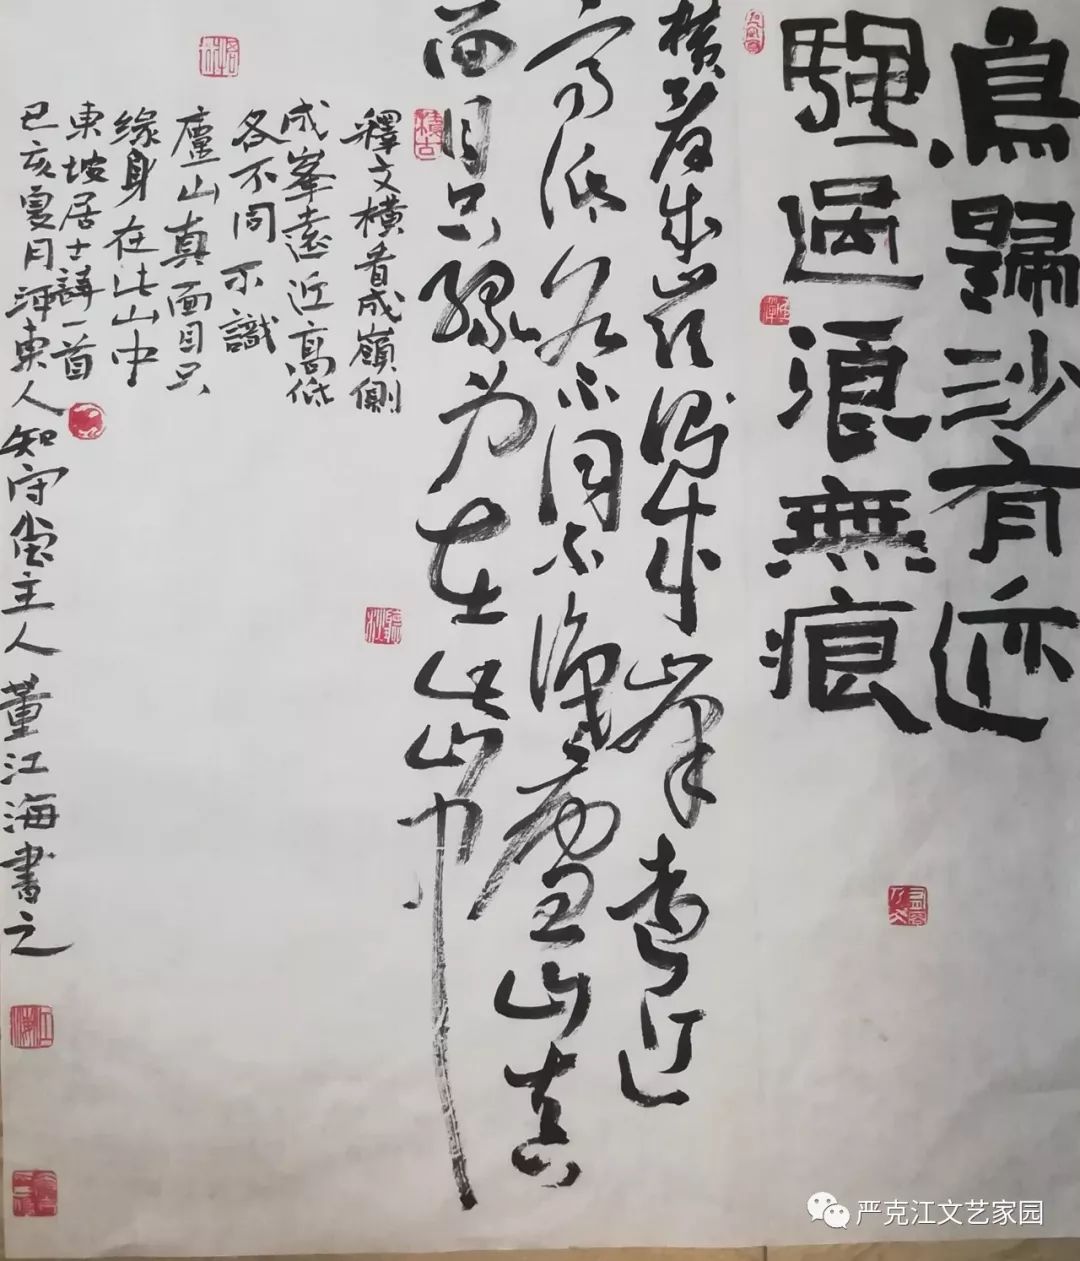 鳥歸沙有迹
颿過浪無痕
橫看成嶺側成峯遠近
高低各不同不識廬山真
面目只緣身在此山中
釋文橫看成嶺側
成峯遠近高低
各不同不識
廬山真面目只
緣身在此山中
東坡居士詩一首
己亥夏月河東人知守堂主人董江海書之
積古
严克江文艺家园